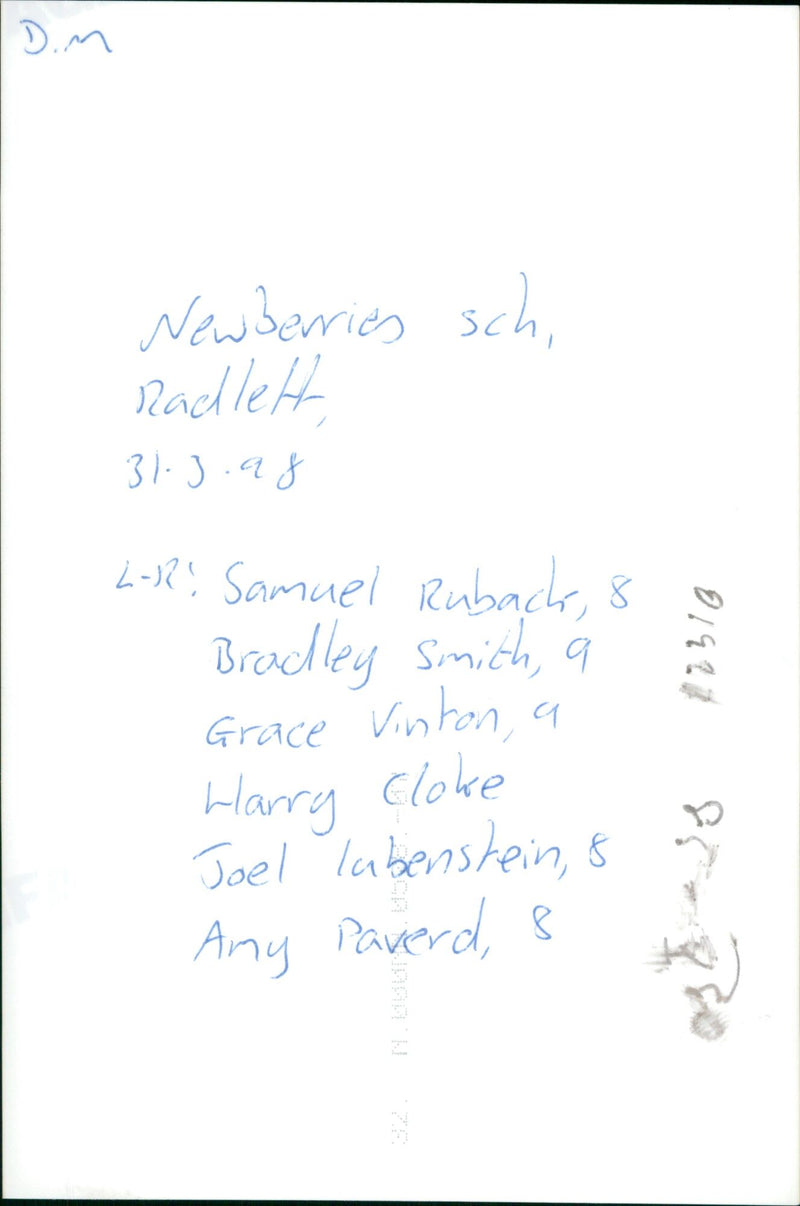 D.M
Newberries sch,
Radlett,
31.3.98
L-R: Samuel Ruback, 8
Bradley Smith, 9
Grace Vinton, 9
Harry Cloke
Joel lubenstein, 8
Amy Paverd, 8